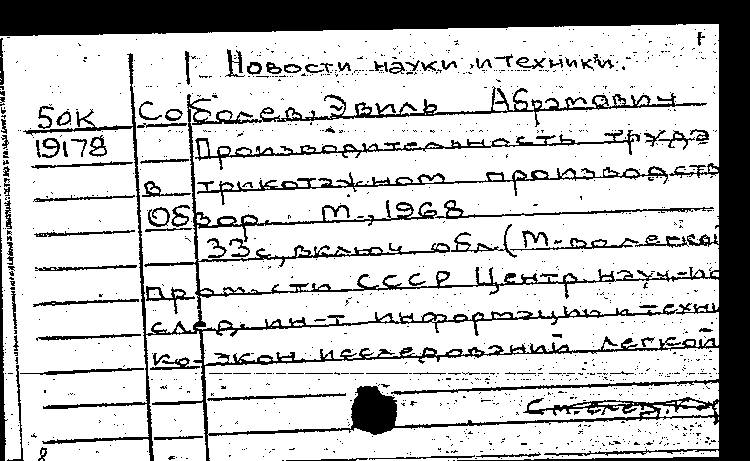 Новости науки и техники.
50к Соболев, Эвиль Абрамович
19178 Производительность труда
в трикотажном производств
Обзор. М., 1968
33с, включ обл (М-во легкой
пром-сти СССР Центр. науч.-ис
след. ин-т информации и техни
ко-экон. исследований легкой
См. след. кар